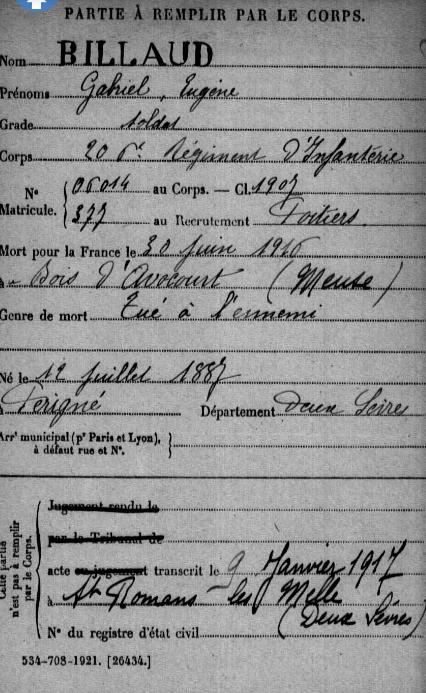 PARTIE À REMPLIR PAR LE CORPS.
Nom BILLAUD
Prénoms Gabriel, Eugène
Grade soldat
Corps 206e Régiment D'Infanterie
N° Matricule. { 06014 au Corps. — Cl. 1907
377 au Recrutement Poitiers
Mort pour la France le 30 juin 1916
à Bois D'Avocourt (Meuse)
Genre de mort Tué à l'ennemi
Né le 12 juillet 1887
à Périgné Département Deux Sèvres
Arrt municipal (pr Paris et Lyon), à défaut rue et N°. }
Cette partie n'est pas à remplir par le Corps.
Jugement rendu le
par le Tribunal de
acte ou jugement transcrit le 9 Janvier 1917
à St Romans-les Melle
(Deux Sèvres)
N° du registre d'état civil
534-708-1921. [26434.]